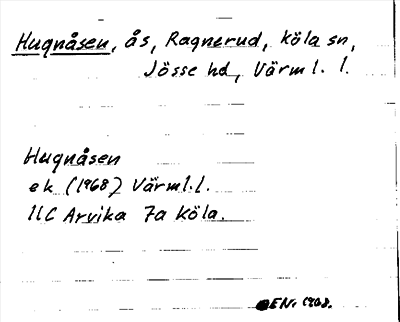 Hugnåsen, ås, Ragnerud, Köla sn,
Jösse hd, Värml. l.
Hugnåsen
ek (1968) Värml. l.
11C Arvika 7a Köla.
ENr 1968.